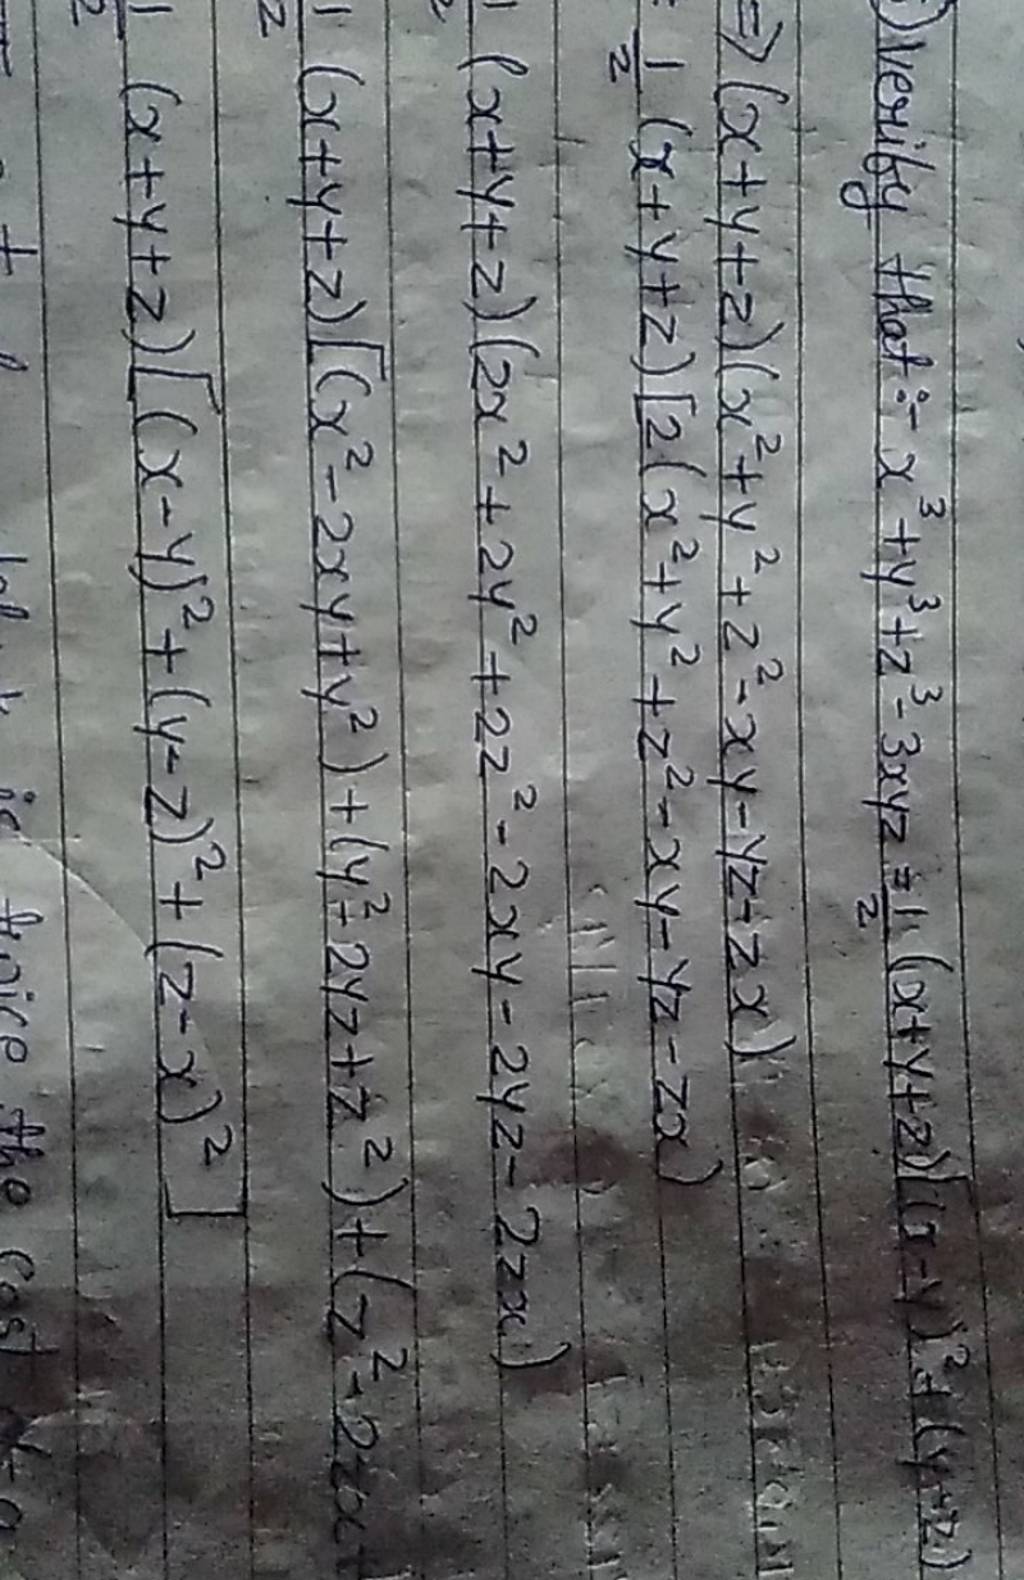 Verify that :- x³+y³+z³-3xyz = 1/2 (x+y+z)[(x-y)²+(y-z)
=> (x+y+z)(x²+y²+z²-xy-yz-zx)
= 1/2 (x+y+z)[2(x²+y²+z²-xy-yz-zx)
1/2 (x+y+z)(2x²+2y²+2z²-2xy-2yz-2zx)
1/2 (x+y+z)[(x²-2xy+y²)+(y²-2yz+z²)+(z²-2zx+
1/2 (x+y+z)[(x-y)²+(y-z)²+(z-x)²]
is twice the cost